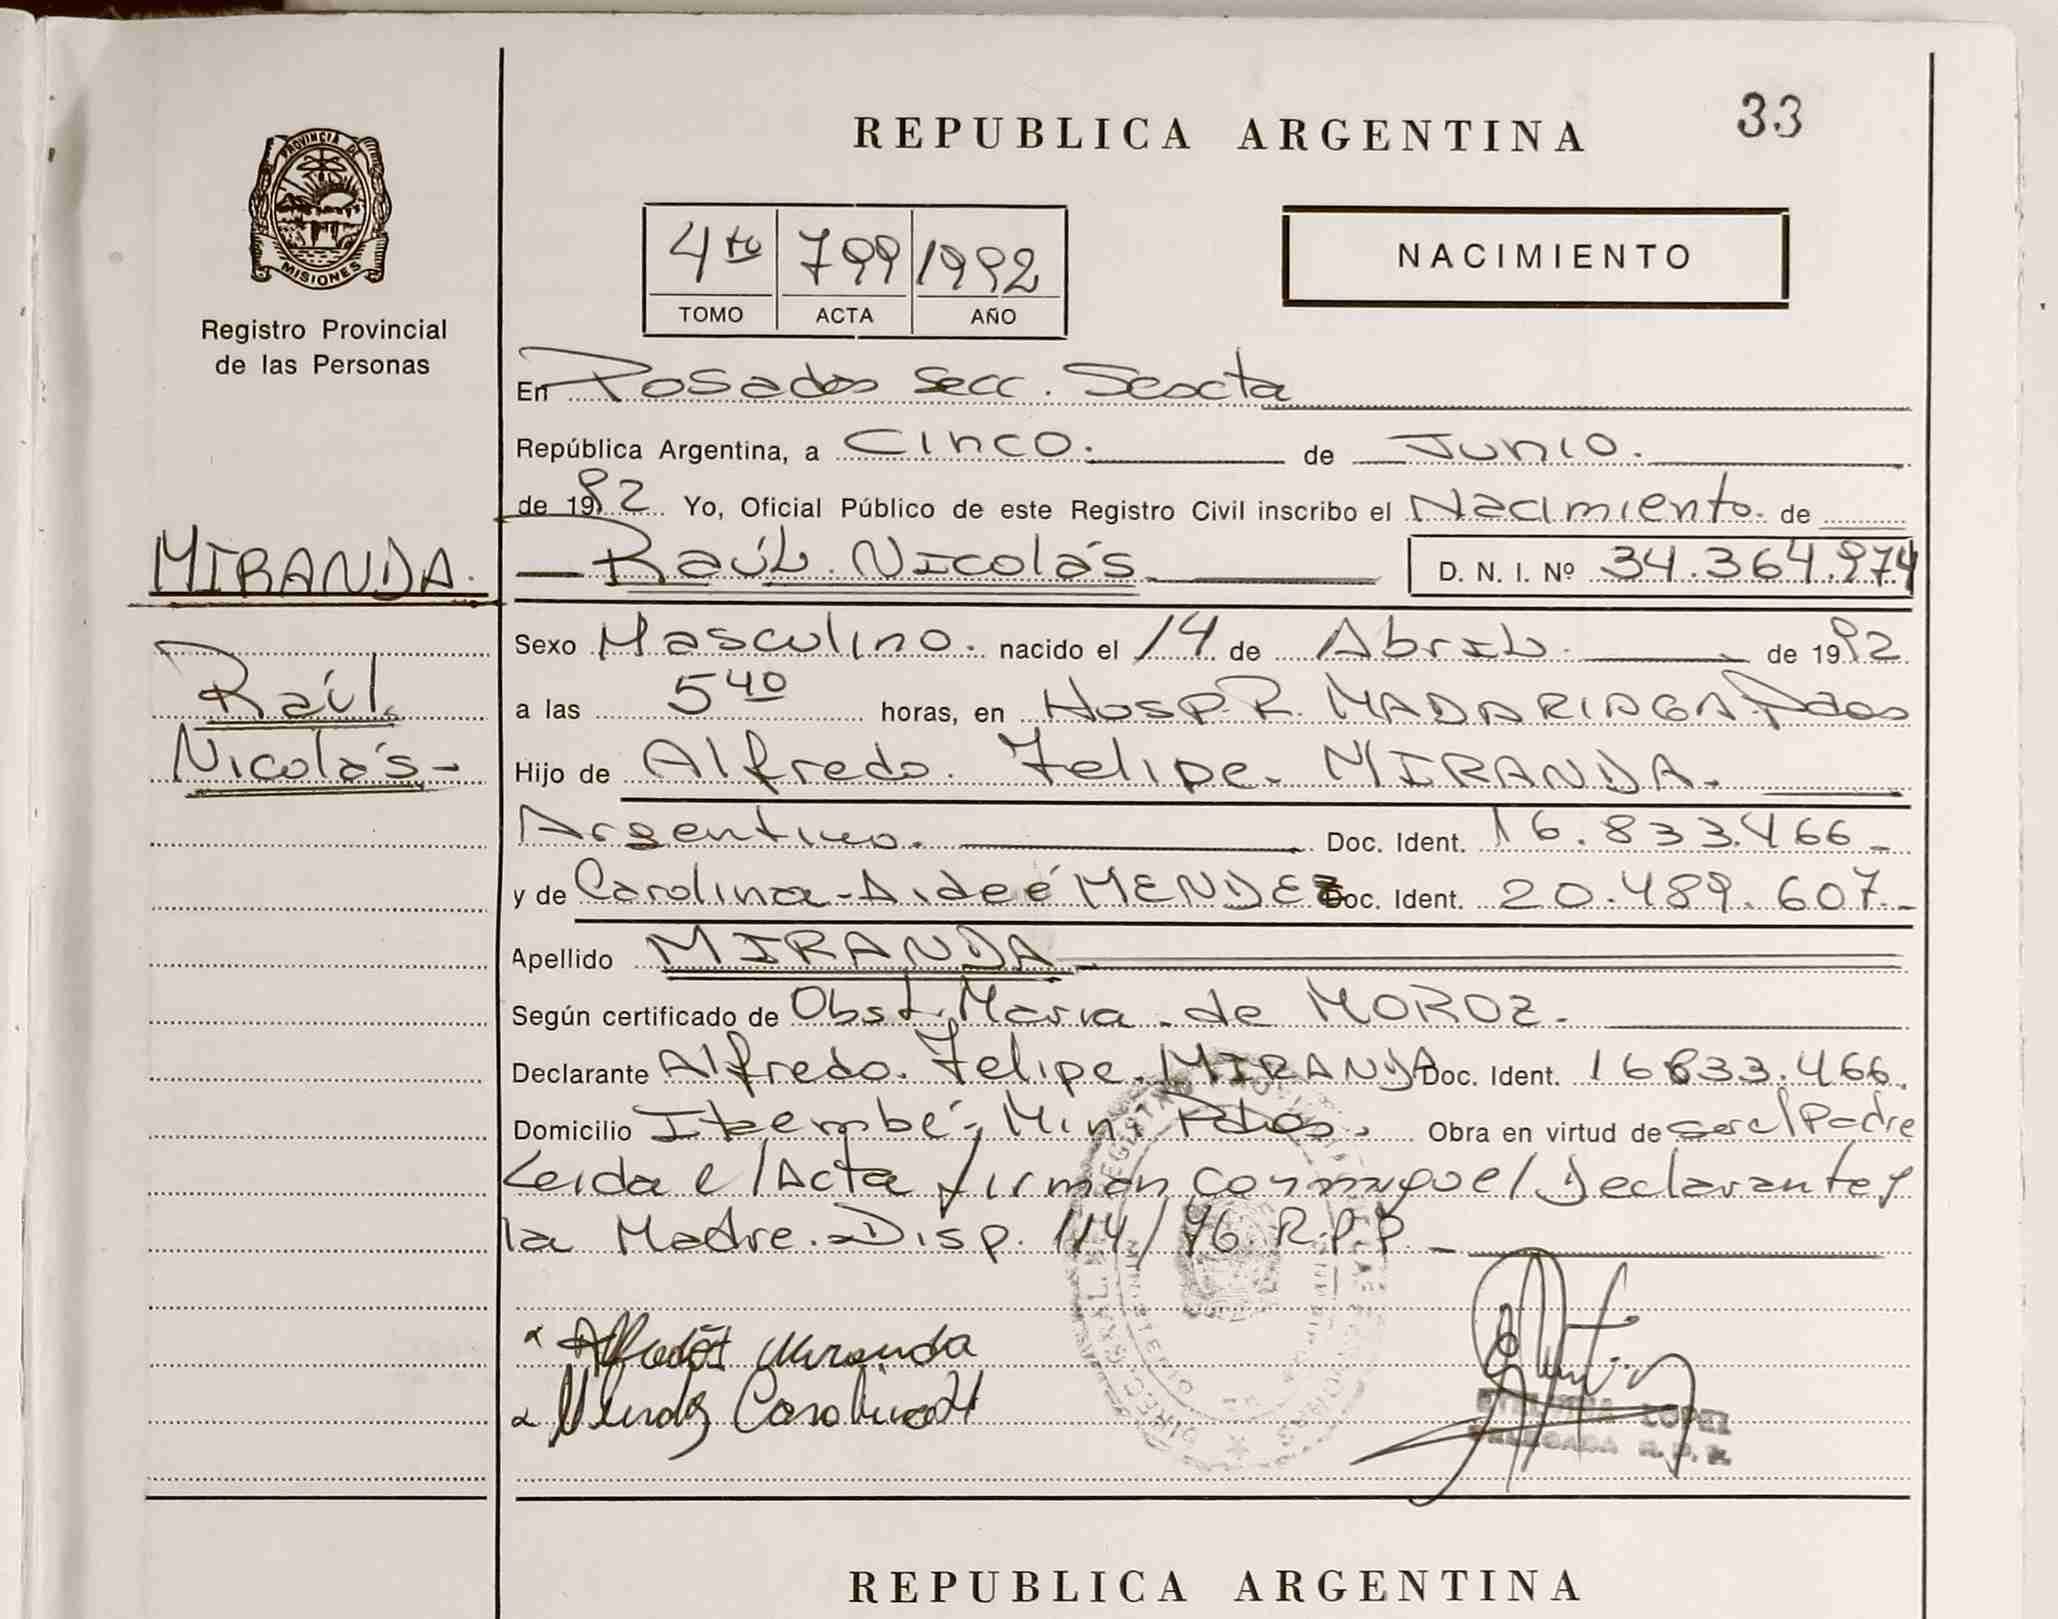 REPUBLICA ARGENTINA
33
PROVINCIA DE
MISIONES
Registro Provincial
de las Personas
4to 799 1992
TOMO ACTA AÑO
NACIMIENTO
En Posadas Secc. Sexta
República Argentina, a Cinco. de Junio.
de 1992 Yo, Oficial Público de este Registro Civil inscribo el Nacimiento. de
MIRANDA.
Raúl. Nicolás D. N. I. Nº 34.364.974
Raúl
Nicolás-
Sexo Masculino. nacido el 14 de Abril. de 1992
a las 5 40 horas, en Hosp. R. MADARIAGA Pdas
Hijo de Alfredo. Felipe. MIRANDA.
Argentino. Doc. Ident. 16.833.466-
y de Carolina-Aideé MENDEZ Doc. Ident. 20.489.607.-
Apellido MIRANDA
Según certificado de Obst. Maria de MOROZ.
Declarante Alfredo. Felipe. MIRANDA Doc. Ident. 16833.466.
Domicilio Itaembé, Miní Pdas. Obra en virtud de ser el Padre
Leida e/Acta firman conmigo el Declarante y
la Madre.-Disp. 114/76 R.P.P.
Miranda
Mendez Carolina H
LOPEZ
DELEGADA R. P. P.
REPUBLICA ARGENTINA